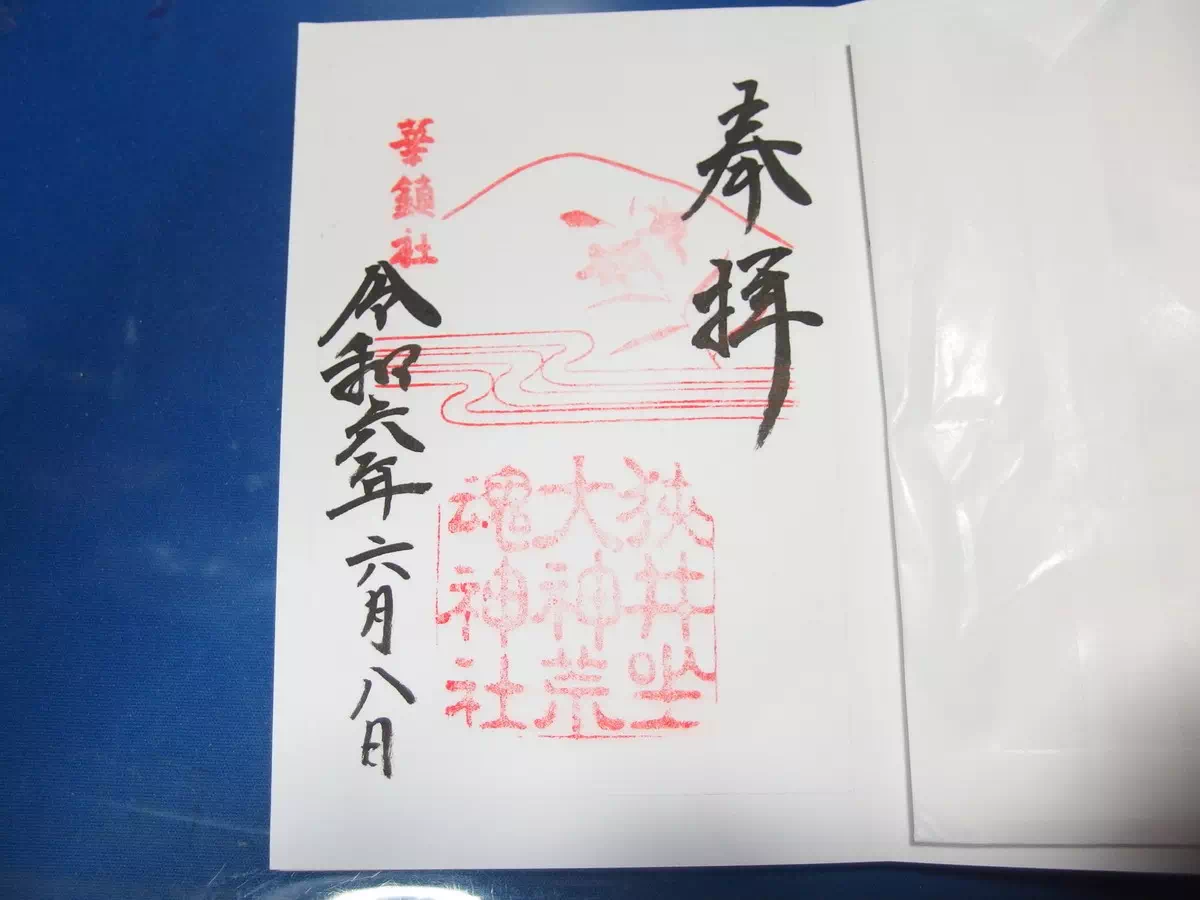 奉拝
狭井坐
大神荒
魂神社
華鎮社
令和六年六月八日